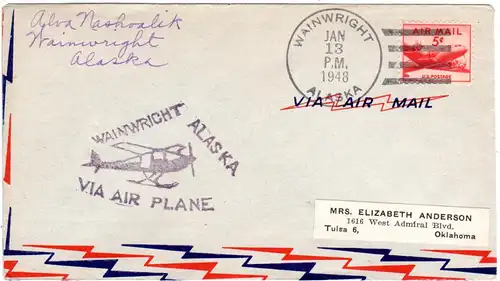 Alva Nashoalik
Wainwright
Alaska
WAINWRIGHT
JAN
13
P.M.
1948
ALASKA
AIR MAIL
5¢
U.S. POSTAGE
VIA AIR MAIL
WAINWRIGHT ALASKA
VIA AIR PLANE
MRS. ELIZABETH ANDERSON
1616 West Admiral Blvd.
Tulsa 6,
Oklahoma